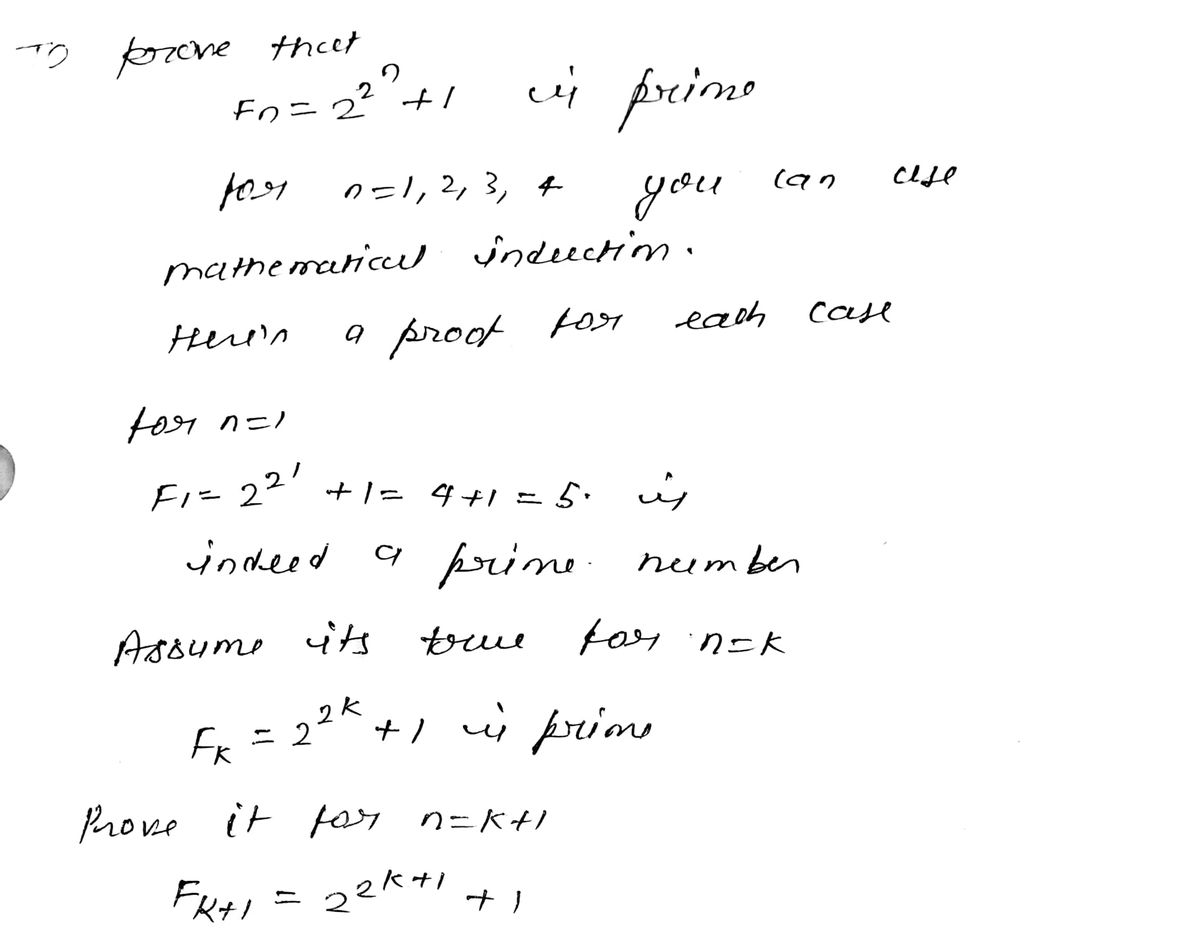 To prove that
Fn = 2^2^n + 1 is prime
for n=1, 2, 3, 4 you can use
mathematical induction.
Here's a proof for each case
for n=1
F1 = 2^2^1 + 1 = 4+1 = 5. is
indeed a prime number
Assume its true for n=k
Fk = 2^2^k + 1 is prime
Prove it for n=k+1
Fk+1 = 2^2^k+1 + 1